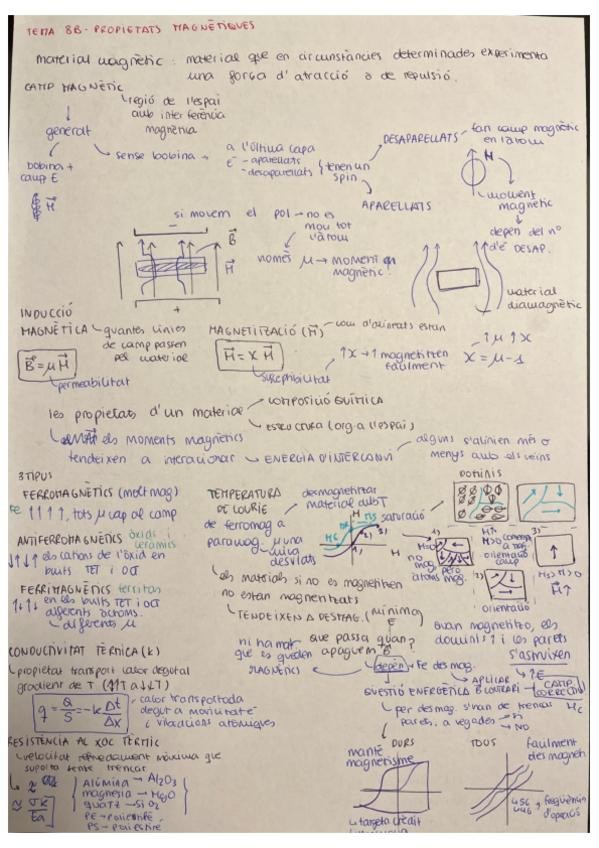 TEMA 8B - PROPIETATS MAGNÈTIQUES
material magnètic : material que en circumstàncies determinades experimenta
una força d'atracció o de repulsió.
CAMP MAGNÈTIC
regió de l'espai
amb interferència
magnètica
generat
bobina +
camp E
sense bobina
a l'última capa
e⁻ - aparellats
- desaparellats
tenen un
spin
DESAPARELLATS
fan camp magnètic
en l'àtom
APARELLATS
moment
magnètic
depèn del nº
d'e⁻ DESAP.
si movem el pol → no es
mou tot
l'àtom
només μ → moment
magnètic
B
H
material
diamagnètic
INDUCCIÓ
MAGNÈTICA
quantes línies
de camp passen
pel material
B = μH
permeabilitat
MAGNETITZACIÓ (M)
com d'alineats estan
M = χ H
susceptibilitat
↑χ → magnetitzen
fàcilment
↑μ ↑χ
χ = μ - 1
les propietats d'un material
COMPOSICIÓ QUÍMICA
ESTRUCTURA (org. a l'espai)
els moments magnètics
tendeixen a interaccionar
ENERGIA D'INTERCANVI
alguns s'alinien més o
menys amb els veïns
3 TIPUS
FERROMAGNÈTICS (molt mag)
Fe ↑↑↑↑, tots μ cap al camp
ANTIFERROMAGNÈTICS òxids i
ceràmics
↓↑↓↑ els cations de l'òxid en
buits TET i OCT
FERRIMAGNÈTICS ferrites
en els buits TET i OCT
diferents àtoms.
diferents μ
TEMPERATURA
DE CURIE
desmagnetitzar
material amb T
de ferromag a
paramag.
saturació
DOMINIS
els materials si no es magnetitzen
no estan magnetitzats
TENDEIXEN A DESMAG. (mínima
E
no mag.
però
àtoms mag.
orientació
camp
orientació
quan magnetitzo, els
dominis ↑ i les parets
s'esmuixen
CONDUCTIVITAT TÈRMICA (k)
propietat transport calor degut al
gradient de T
q = Q/S = -k Δt/Δx
calor transportada
degut a mobilitat e⁻
i vibracions atòmiques
ni ha mat
que es queden
MAGNÈTICS
que passa quan?
apaguem B
depèn
Fe desmag.
QÜESTIÓ ENERGÈTICA
APLICAR
CAMP
COERCITIU
Hc
per desmag. s'han de trencar
parets, a vegades
sí
NO
RESISTÈNCIA AL XOC TÈRMIC
velocitat refredament màxima que
suporta sense trencar
≈ σk/Eα
Alúmina → Al₂O₃
magnèsia → MgO
quartz → SiO₂
PS - poliestirè
DURS
manté
magnetisme
targeta crèdit
TOUS
fàcilment
des magnet
freqüència
d'operació